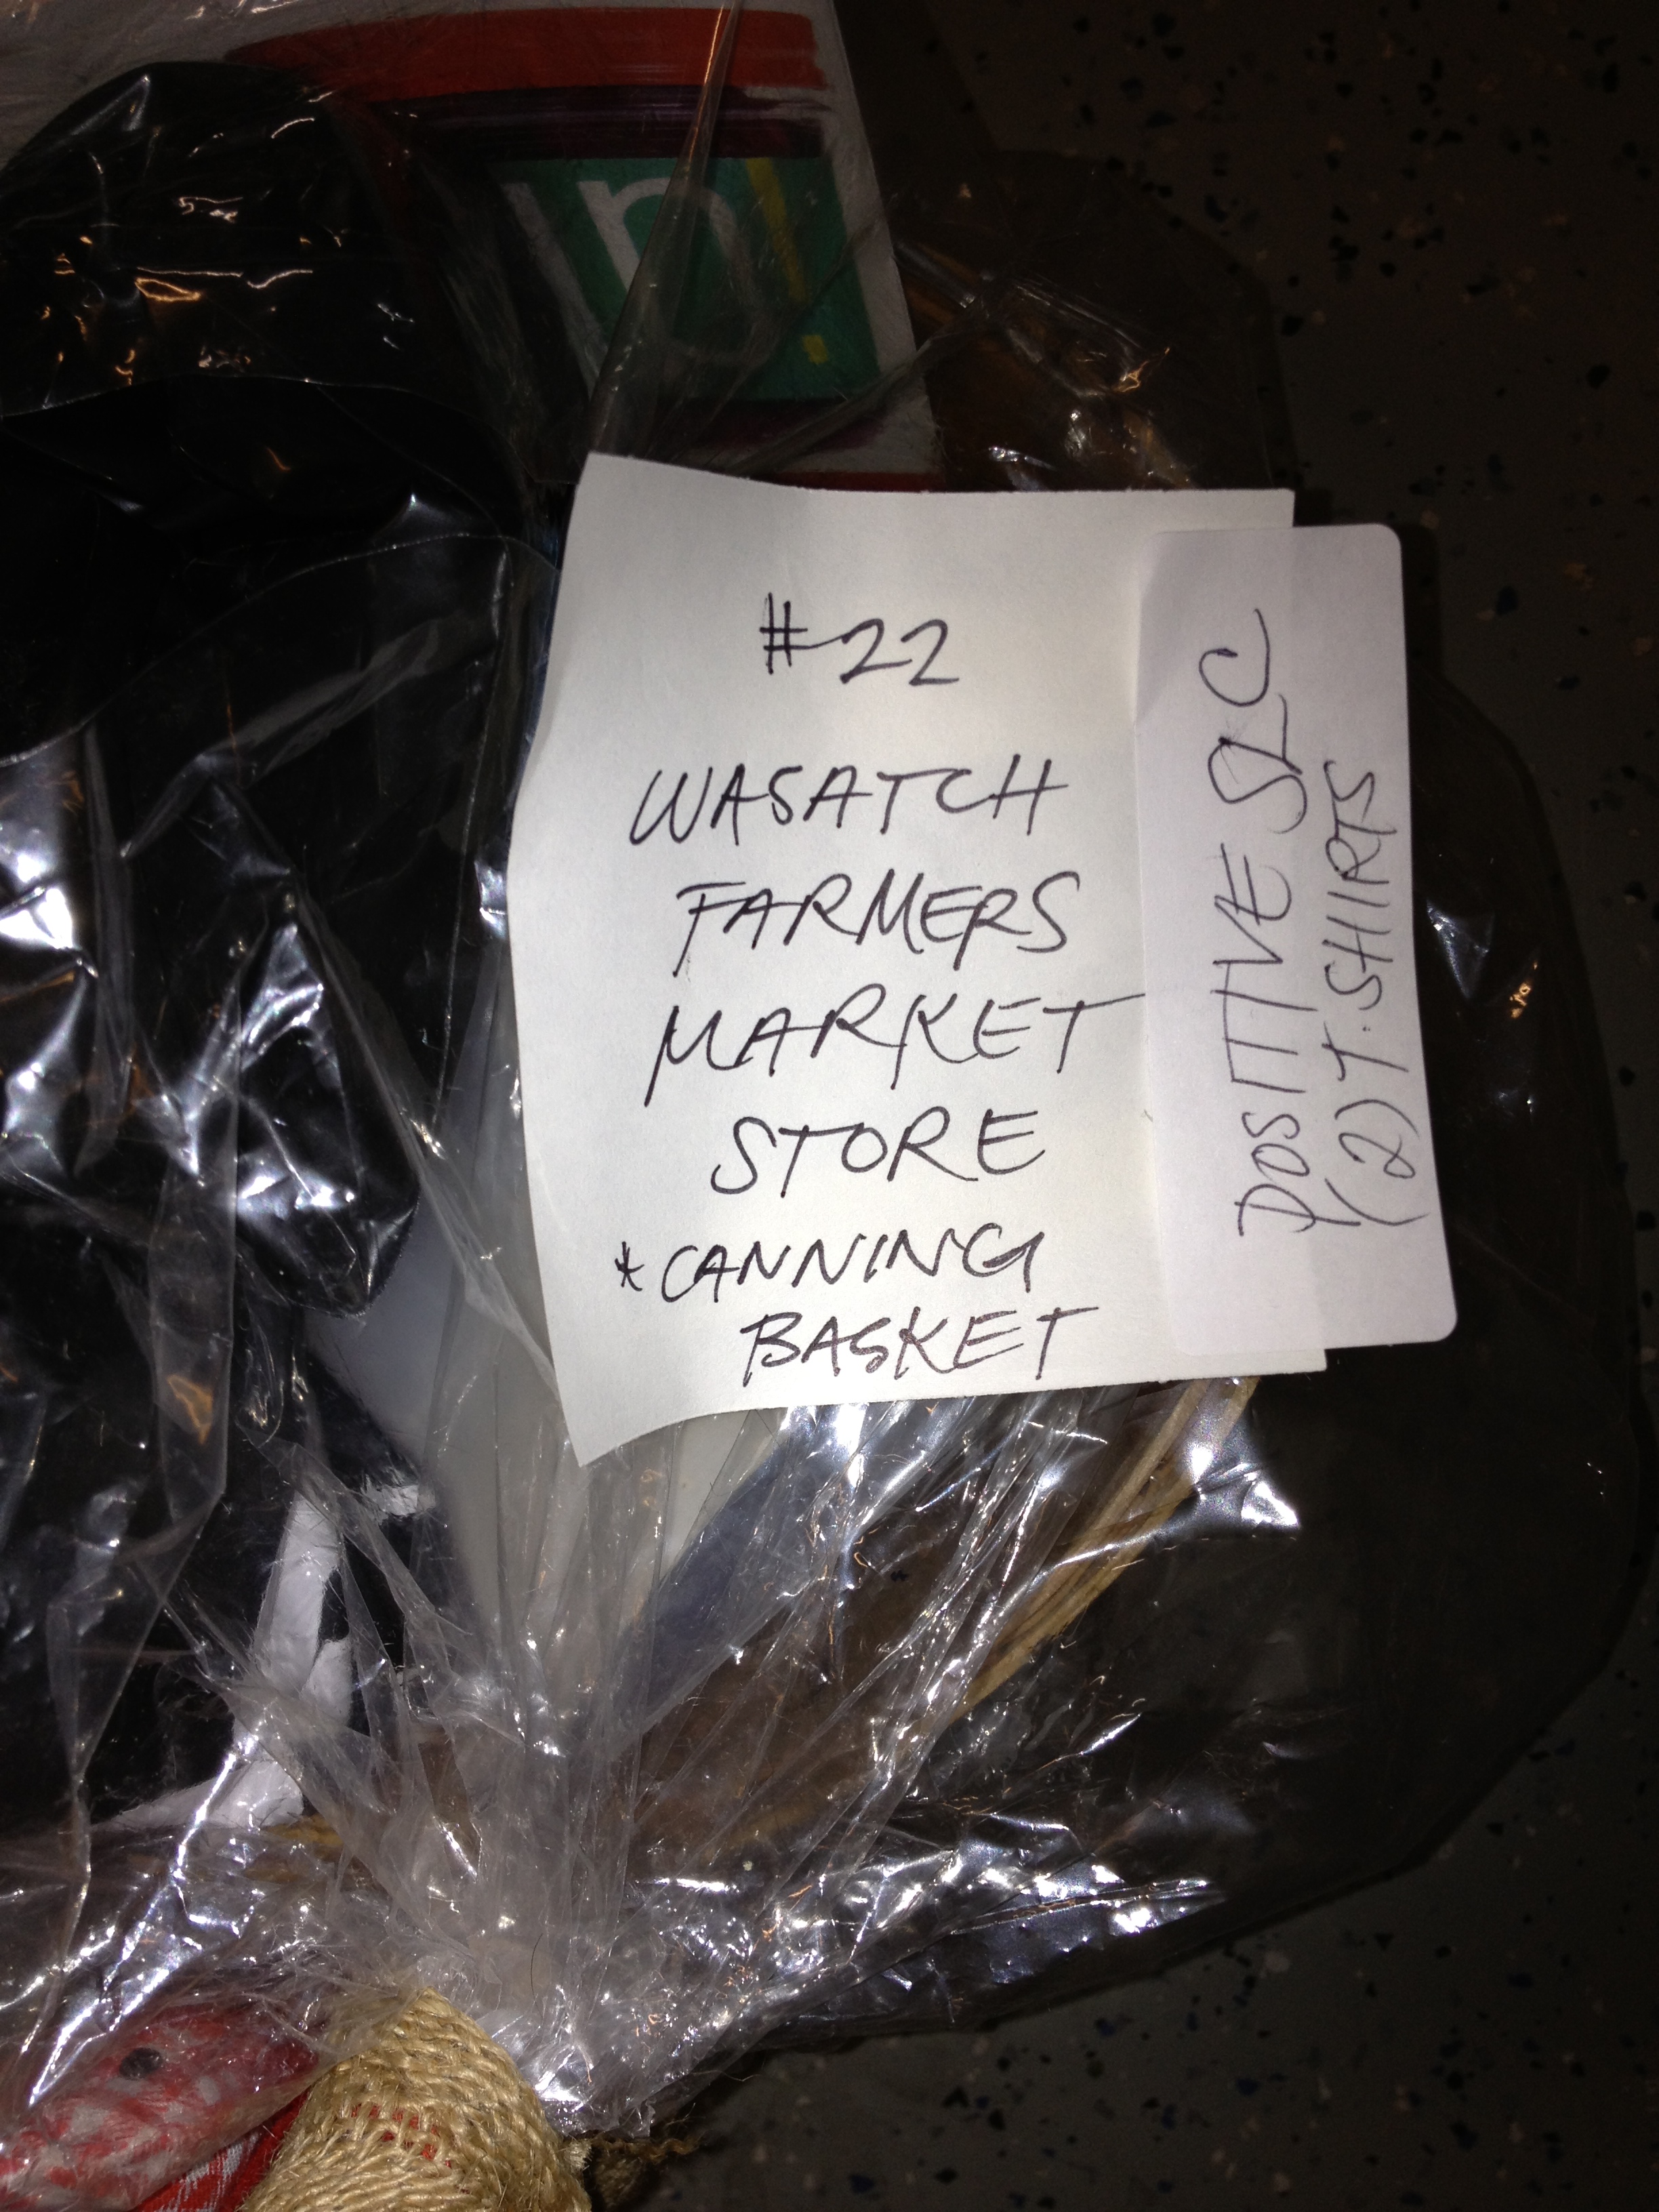 n!
#22
WASATCH
FARMERS
MARKET
STORE
*CANNING
BASKET
POSITIVE SLC
(2) T-SHIRTS